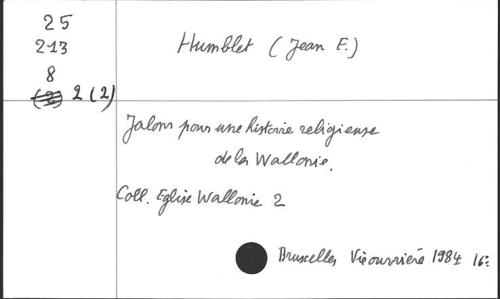 25
213
8
2 (2)
Humblet (Jean E.)
Jalons pour une histoire religieuse
de la Wallonie.
Coll. Eglise Wallonie 2
Bruxelles Vie ouvrière 1984 16: